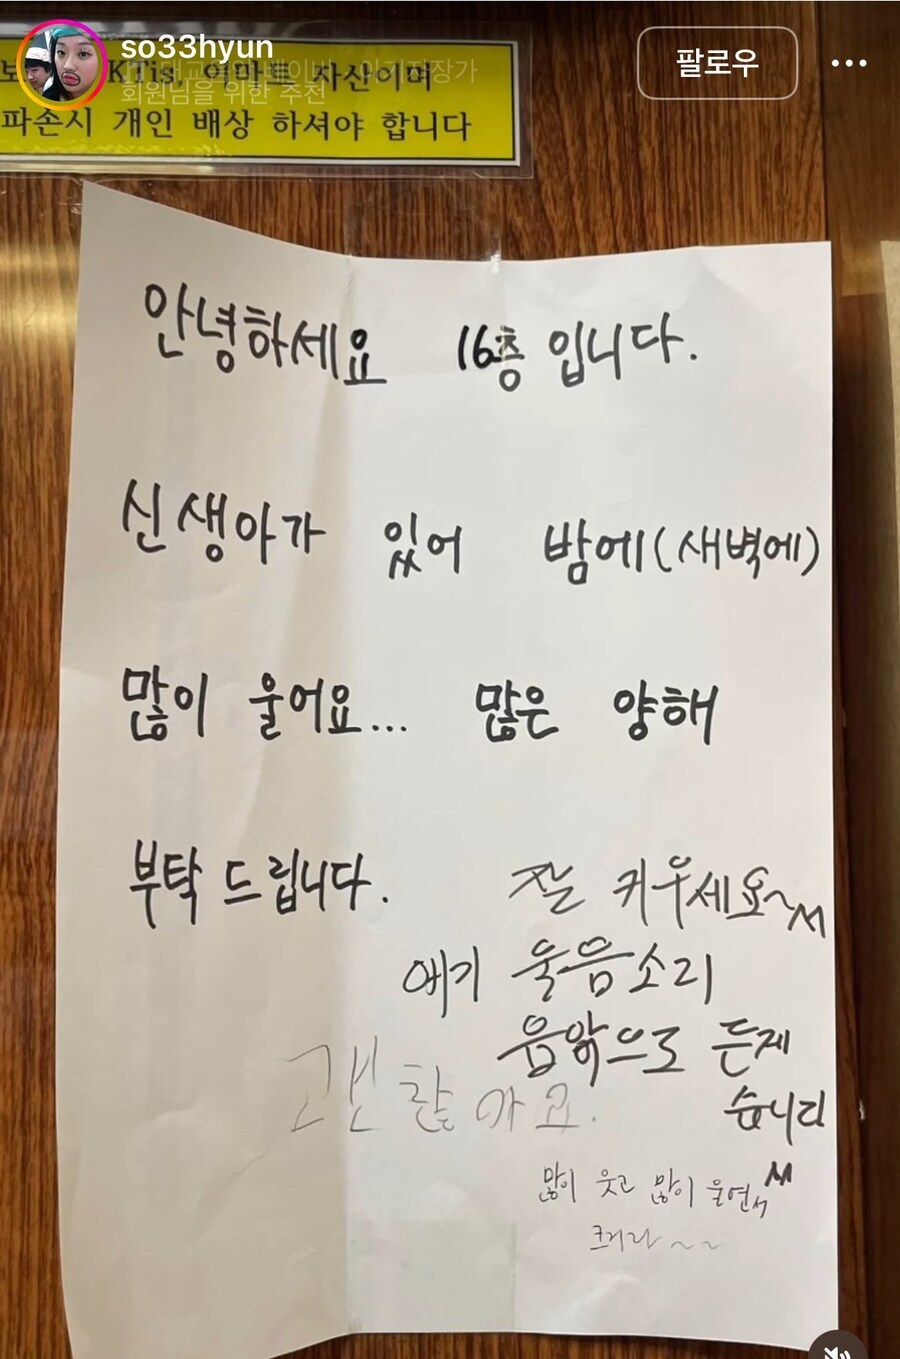 so33hyun
팔로우
회원님을 위한 추천
KTis, 이마트 자산이며
파손시 개인 배상 하셔야 합니다
안녕하세요 16층 입니다.
신생아가 있어 밤에(새벽에)
많이 울어요... 많은 양해
부탁 드립니다.
잘 키우세요~
애기 울음소리
음앆으로 듣제
습니다
괜찮아요.
많이 웃고 많이 울면서
크거라~~